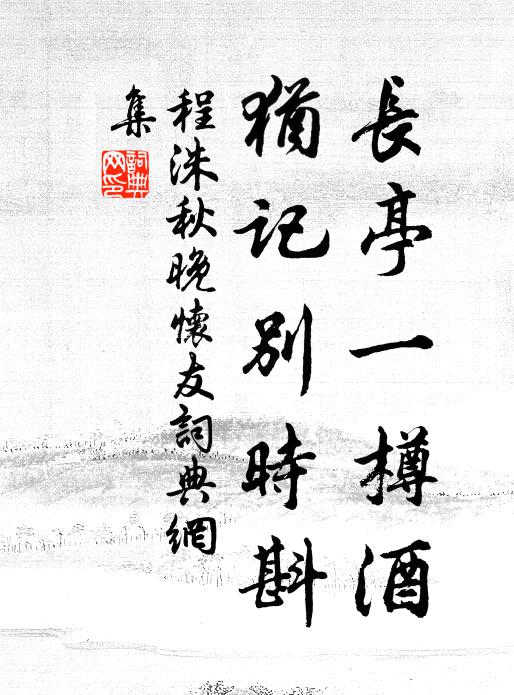 長亭一樽酒
猶記別時斟
程洙秋晚懷友詞典網
集
詞典
网印